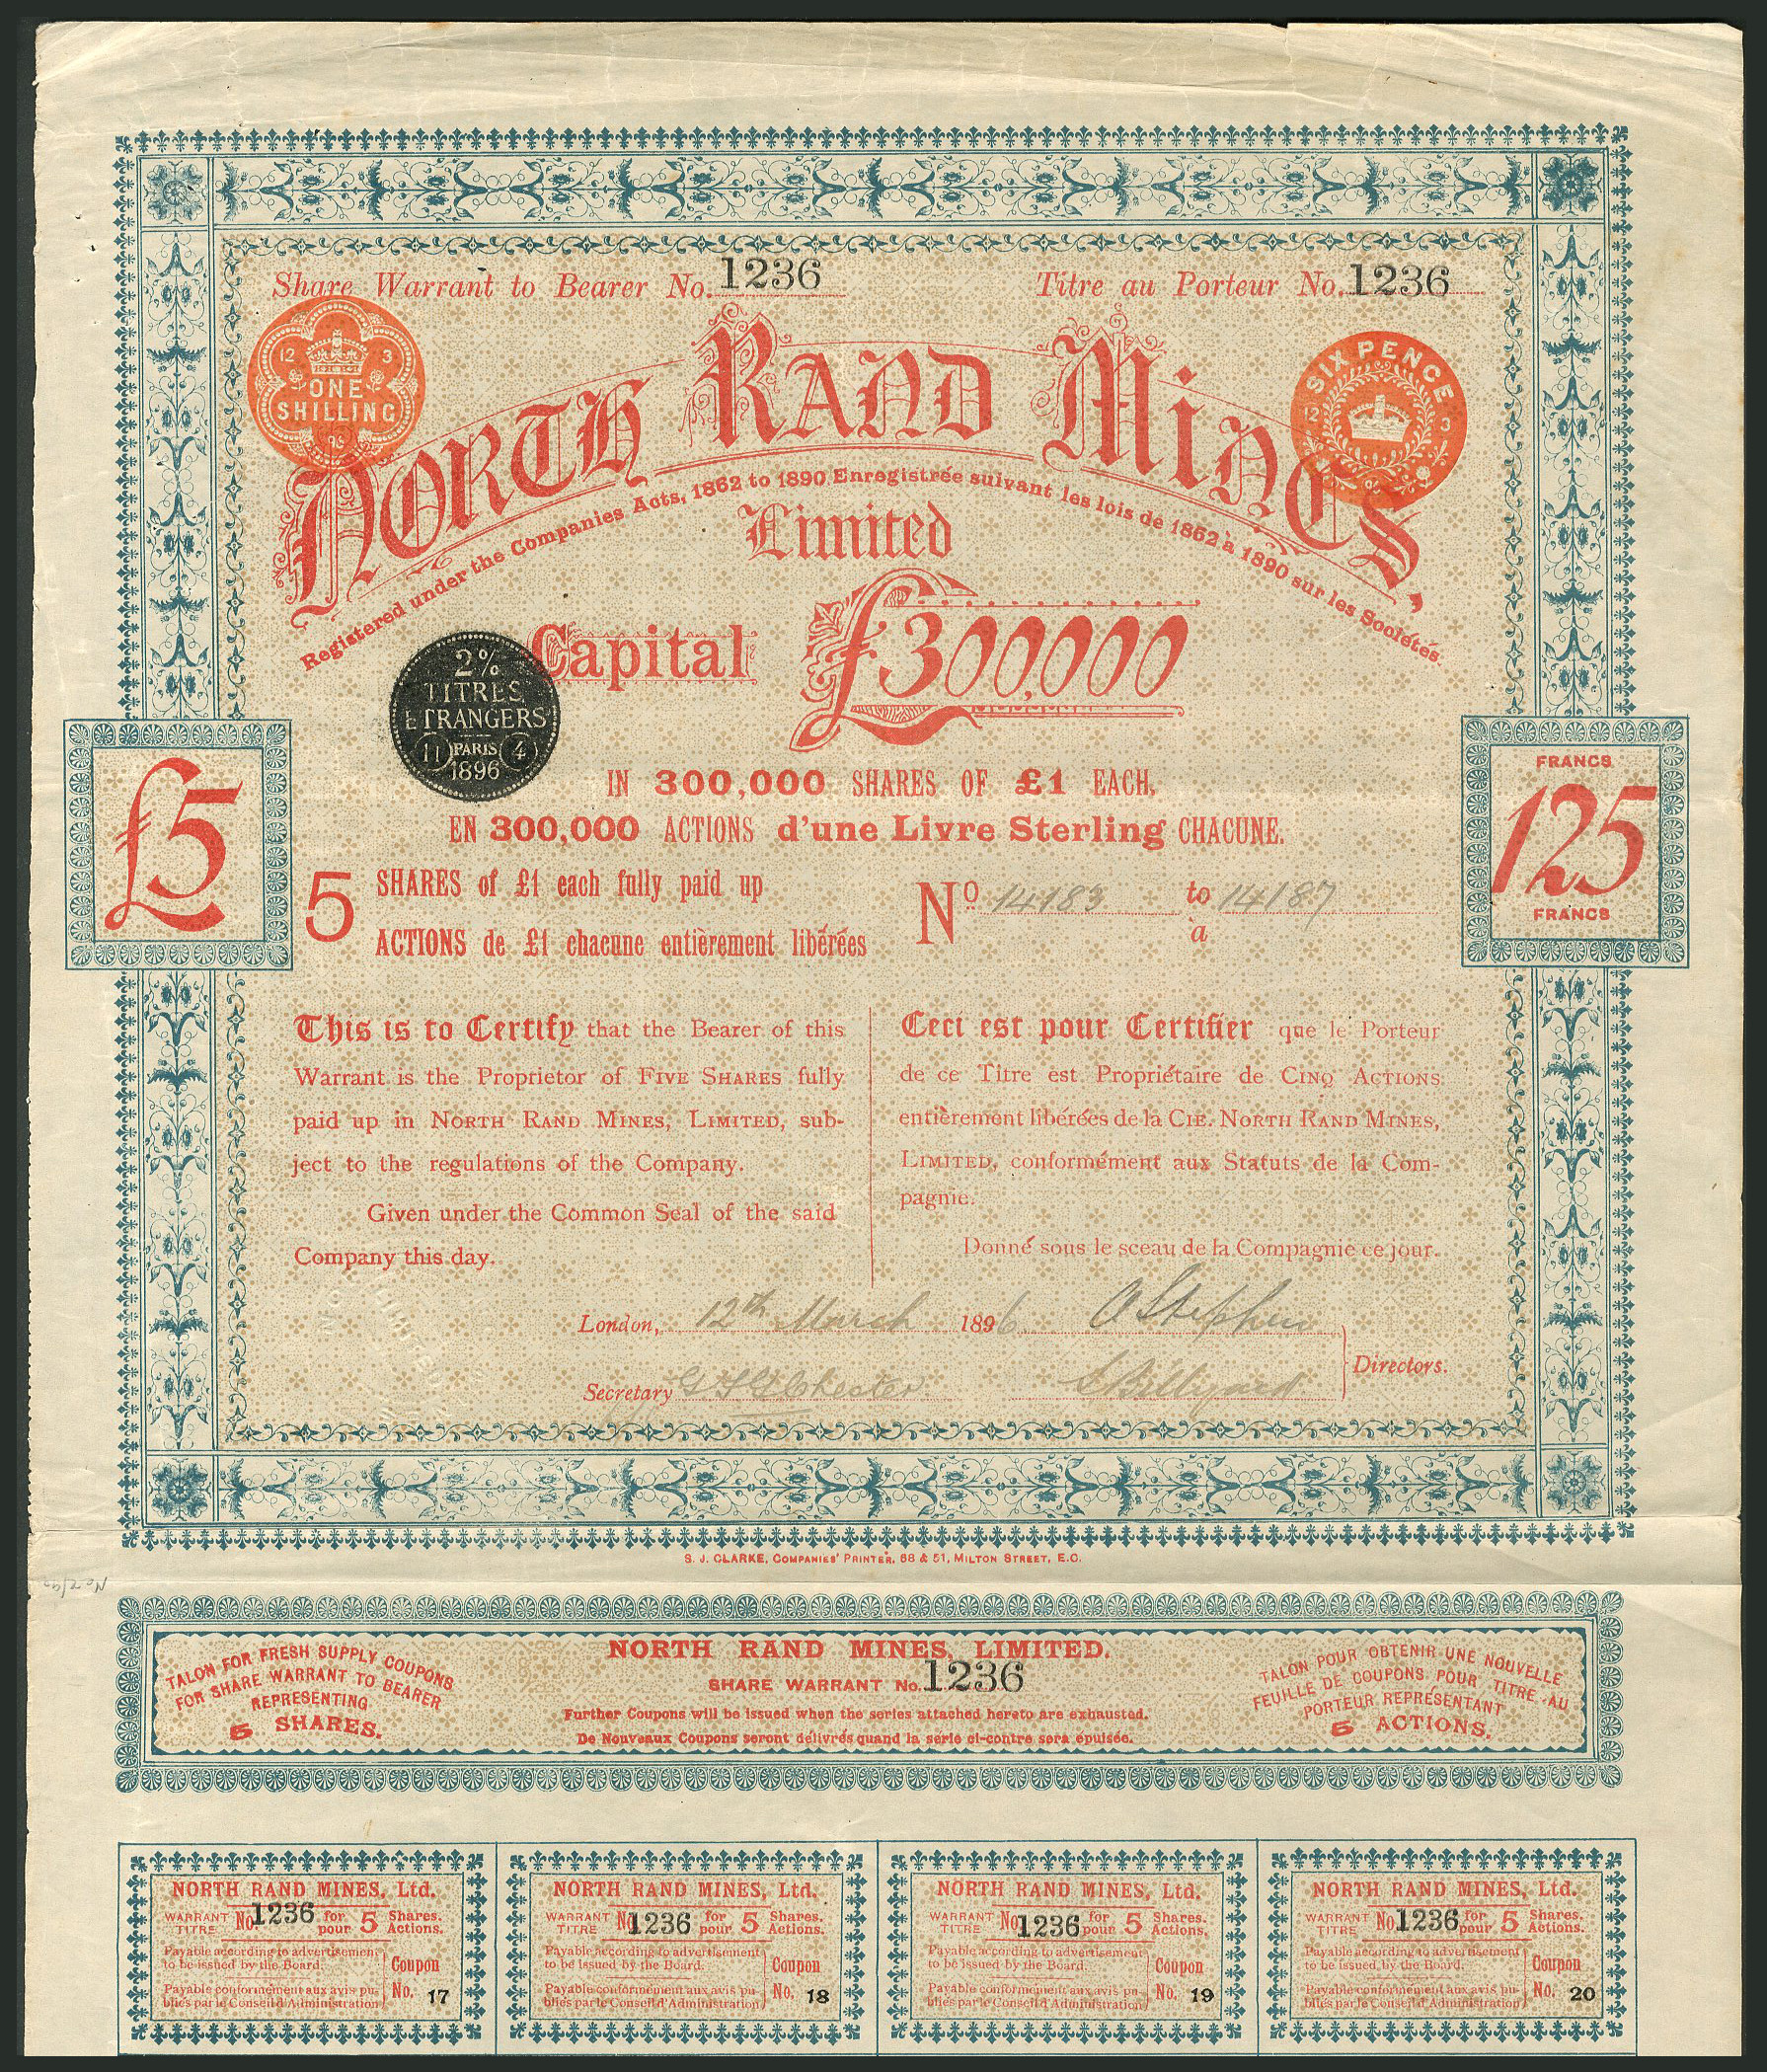 Share Warrant to Bearer No. 1236
Titre au Porteur No. 1236
12 3
ONE
SHILLING
96
SIX PENCE
12 3
96
North Rand Mines,
Registered under the Companies Acts, 1862 to 1890, Enregistrée suivant les lois de 1862 à 1890 sur les Sociétés.
Limited
Capital £300,000
2%
TITRES
ETRANGERS
11 PARIS 4
1896
IN 300,000 SHARES OF £1 EACH,
EN 300,000 ACTIONS d'une Livre Sterling CHACUNE.
£5
FRANCS
125
FRANCS
5 SHARES of £1 each fully paid up
ACTIONS de £1 chacune entièrement libérées
No. 14183 to 14187
à
This is to Certify that the Bearer of this
Warrant is the Proprietor of FIVE SHARES fully
paid up in NORTH RAND MINES, LIMITED, sub-
ject to the regulations of the Company.
Given under the Common Seal of the said
Company this day.
Ceci est pour Certifier que le Porteur
de ce Titre est Propriétaire de CINQ ACTIONS
entièrement libérées de la CIE. NORTH RAND MINES,
LIMITED, conformément aux Statuts de la Com-
pagnie.
Donné sous le sceau de la Compagnie ce jour.
London, 12th March 1896 Stephen
Secretary
Directors.
S. J. CLARKE, COMPANIES' PRINTER, 68 & 51, MILTON STREET, E.C.
TALON FOR FRESH SUPPLY COUPONS
FOR SHARE WARRANT TO BEARER
REPRESENTING
5 SHARES.
NORTH RAND MINES, LIMITED.
SHARE WARRANT No. 1236
Further Coupons will be issued when the series attached hereto are exhausted.
De Nouveaux Coupons seront délivrés quand la serie ci-contre sera épuisée.
TALON POUR OBTENIR UNE NOUVELLE
FEUILLE DE COUPONS POUR TITRE AU
PORTEUR REPRÉSENTANT
5 ACTIONS.
NORTH RAND MINES, Ltd.
WARRANT TITRE No 1236 for pour 5 Shares. Actions.
Payable according to advertisement
to be issued by the Board.
Payable conformément aux avis pu-
bliés par le Conseil d'Administration
Coupon
No. 17
NORTH RAND MINES, Ltd.
WARRANT TITRE No 1236 for pour 5 Shares. Actions.
Payable according to advertisement
to be issued by the Board.
Payable conformément aux avis pu-
bliés par le Conseil d'Administration
Coupon
No. 18
NORTH RAND MINES, Ltd.
WARRANT TITRE No 1236 for pour 5 Shares. Actions.
Payable according to advertisement
to be issued by the Board.
Payable conformément aux avis pu-
bliés par le Conseil d'Administration
Coupon
No. 19
NORTH RAND MINES, Ltd.
WARRANT TITRE No 1236 for pour 5 Shares. Actions.
Payable according to advertisement
to be issued by the Board.
Payable conformément aux avis pu-
bliés par le Conseil d'Administration
Coupon
No. 20